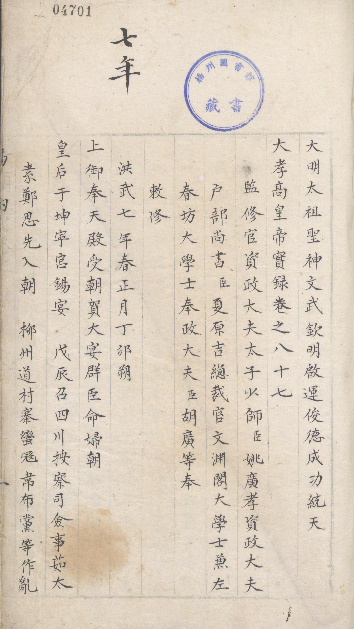 04701
七年
揚州圖書館
藏書
大明太祖聖神文武欽明啟運俊德成功統天
大孝高皇帝實錄卷之八十七
監修官資政大夫太子少師臣姚廣孝資政大夫
戶部尚書臣夏原吉總裁官文淵閣大學士兼左
春坊大學士奉政大夫臣胡廣等奉
敕修
洪武七年春正月丁卯朔
上御奉天殿受朝賀大宴群臣命婦朝
皇后于坤寧宮錫宴 戊辰召四川按察司僉事茹太
素鄭思先入朝 柳州道村寨蠻寇韋布黨等作亂